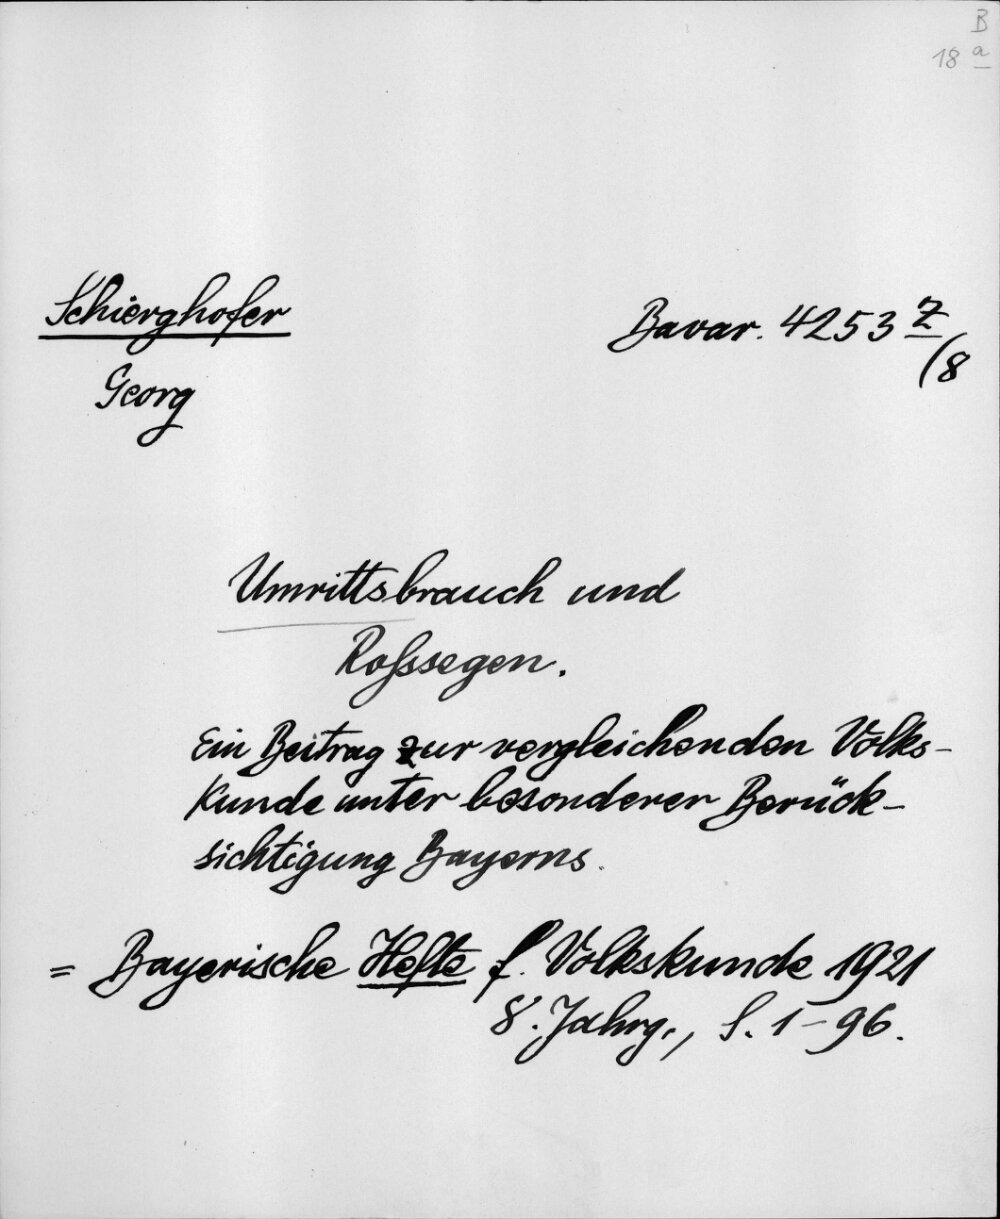 B
18 a
Schierghofer
Georg
Bavar. 4253 z
(8
Umrittsbrauch und
Roßsegen.
Ein Beitrag zur vergleichenden Volks-
kunde unter besonderer Berück-
sichtigung Bayerns.
= Bayerische Hefte f. Volkskunde 1921
8. Jahrg., S. 1-96.